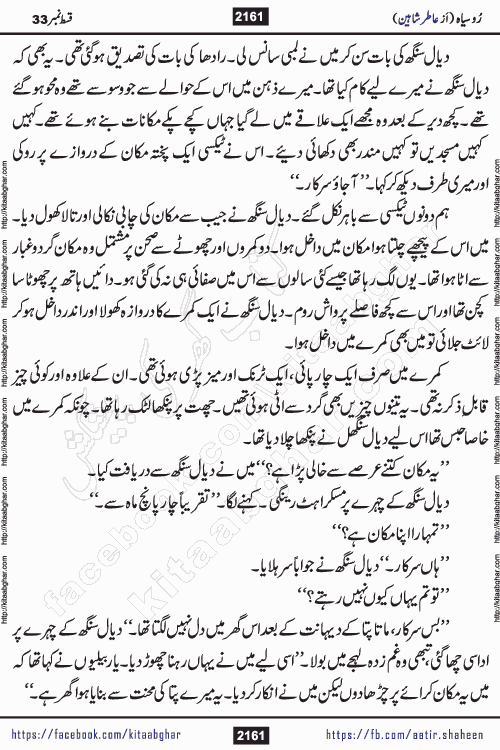 رُوسیاہ (از عاطر شاہین)
2161
قسط نمبر 33
دیال سنگھ کی بات سن کر میں نے لمبی سانس لی۔ رادھا کی بات کی تصدیق ہوگئی تھی۔ یہ بھی کہ
دیال سنگھ نے میرے لیے کام کیا تھا۔ میرے ذہن میں اس کے حوالے سے جو وسوسے تھے وہ محو ہو گئے
تھے۔ کچھ دیر کے بعد وہ مجھے ایک علاقے میں لے گیا جہاں کچے پکے مکانات بنے ہوئے تھے۔ کہیں
کہیں مسجدیں تو کہیں مندر بھی دکھائی دیئے۔ اس نے ٹیکسی ایک پختہ مکان کے دروازے پر روکی
اور میری طرف دیکھ کر کہا۔ ”آجاؤ سرکار۔“
ہم دونوں ٹیکسی سے باہر نکل گئے۔ دیال سنگھ نے جیب سے مکان کی چابی نکالی اور تالا کھول دیا۔
میں اس کے پیچھے چلتا ہوا مکان میں داخل ہوا۔ دو کمروں اور چھوٹے سے صحن پر مشتمل وہ مکان گرد و غبار
سے اٹا ہوا تھا۔ یوں لگ رہا تھا جیسے کئی سالوں سے اس میں صفائی ہی نہ کی گئی ہو۔ دائیں ہاتھ پر چھوٹا سا
کچن تھا اور اس سے کچھ فاصلے پر واش روم۔ دیال سنگھ نے ایک کمرے کا دروازہ کھولا اور اندر داخل ہو کر
لائٹ جلائی تو میں بھی کمرے میں داخل ہوا۔
کمرے میں صرف ایک چارپائی، ایک ٹرنک اور میز پڑی ہوئی تھی۔ ان کے علاوہ اور کوئی چیز
قابل ذکر نہ تھی۔ یہ تینوں چیزیں بھی گرد سے اٹی ہوئی تھیں۔ چھت پر پنکھا لٹک رہا تھا۔ چونکہ کمرے میں
خاصا حبس تھا اس لیے دیال سنگھل نے پنکھا چلا دیا تھا۔
”یہ مکان کتنے عرصے سے خالی پڑا ہے؟“ میں نے دیال سنگھ سے دریافت کیا۔
دیال سنگھ کے چہرے پر مسکراہٹ رینگی۔ کہنے لگا۔ ”تقریباً چار پانچ ماہ سے۔“
”تمہارا اپنا مکان ہے؟“
”ہاں سرکار۔“ دیال سنگھ نے جواباً سر ہلایا۔
”تو تم یہاں کیوں نہیں رہتے؟“
”بس سرکار، ماتا پتا کے دیہانت کے بعد اس گھر میں دل نہیں لگتا تھا۔“ دیال سنگھ کے چہرے پر
اداسی چھا گئی، تبھی وہ غم زدہ لہجے میں بولا۔ ”اسی لیے میں نے یہاں رہنا چھوڑ دیا۔ یار بیلیوں نے کہا تھا کہ
میں یہ مکان کرائے پر چڑھا دوں لیکن میں نے انکار کر دیا۔ یہ میرے پتا کی محنت سے بنایا ہوا گھر ہے۔“
https://facebook.com/kitaabghar
2161
http://fb.com/aatir.shaheen
http://kitaabghar.com